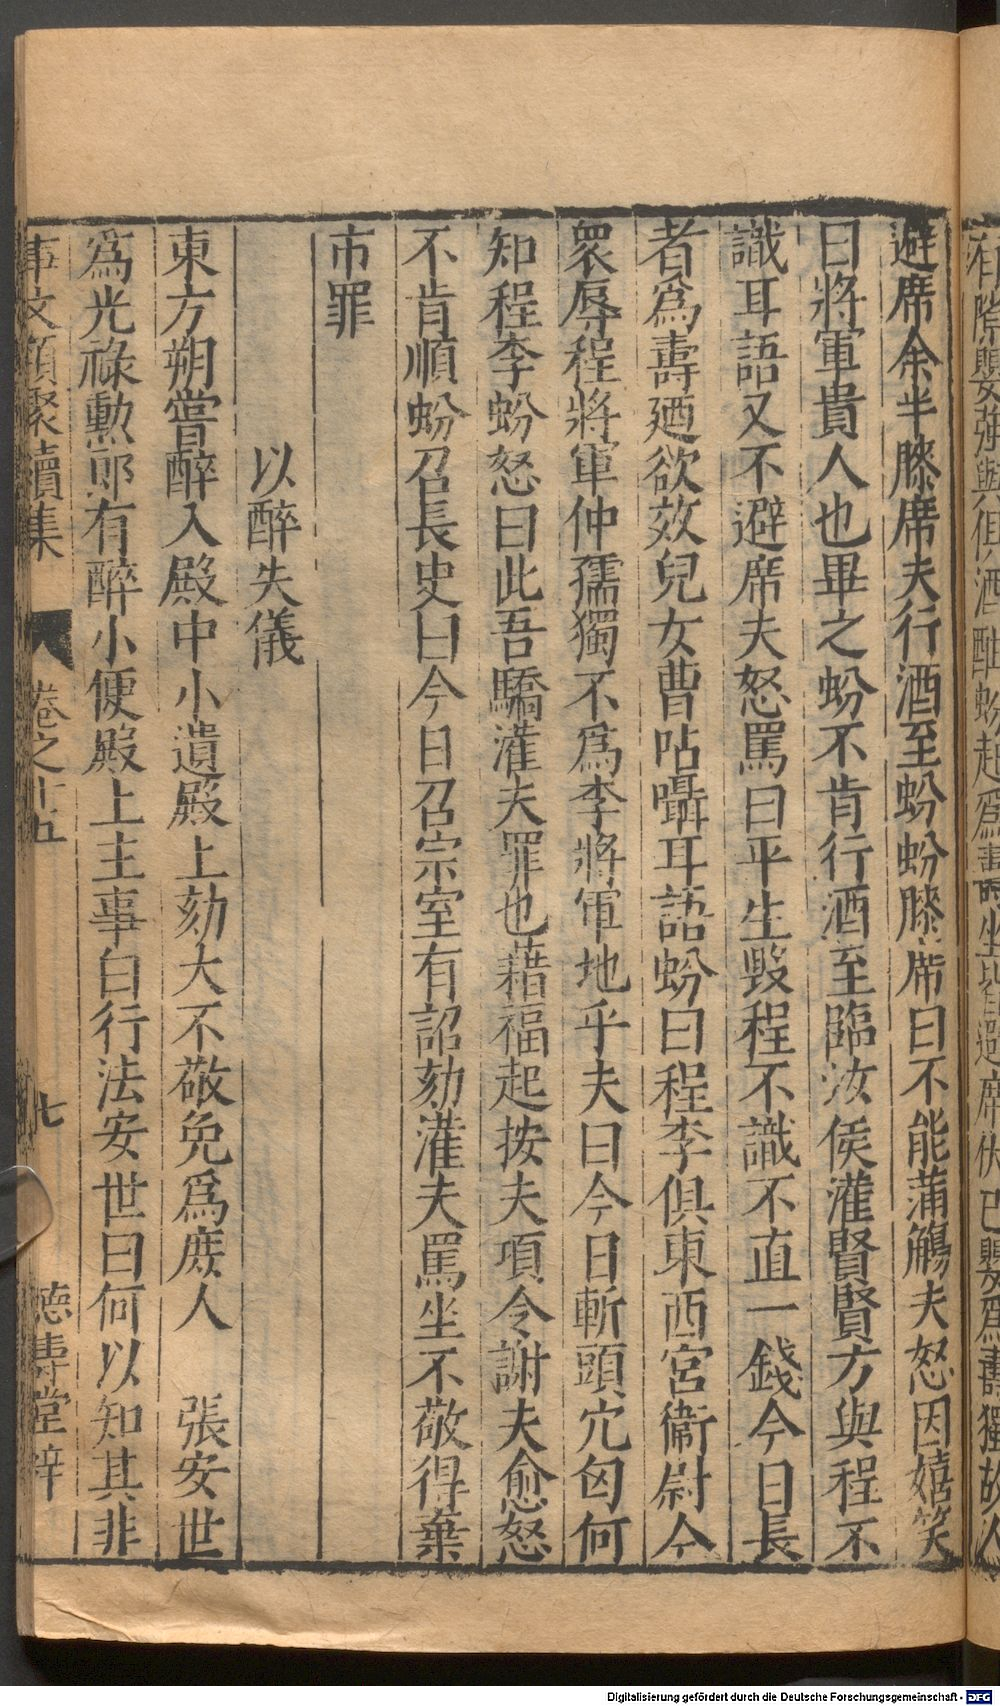 有隙嬰強與俱酒酣蚡起爲壽坐皆避席伏已嬰爲壽獨故人
避席余半膝席夫行酒至蚡蚡膝席曰不能蒲觴夫怒因嬉笑
曰將軍貴人也畢之蚡不肯行酒至臨汝侯灌賢賢方與程不
識耳語又不避席夫怒罵曰平生毀程不識不直一錢今日長
者爲壽廼欲效兒女曹呫囁耳語蚡曰程李俱東西宮衞尉今
衆辱程將軍仲孺獨不爲李將軍地乎夫曰今日斬頭穴匈何
知程李蚡怒曰此吾驕灌夫罪也藉福起按夫項令謝夫愈怒
不肯順蚡召長史曰今日召宗室有詔劾灌夫罵坐不敬得棄
市罪
以醉失儀
東方朔嘗醉入殿中小遺殿上劾大不敬免爲庶人 張安世
爲光祿勲郎有醉小便殿上主事白行法安世曰何以知其非
事文類聚續集 卷之十五 七 德壽堂梓
Digitalisierung gefördert durch die Deutsche Forschungsgemeinschaft - DFG